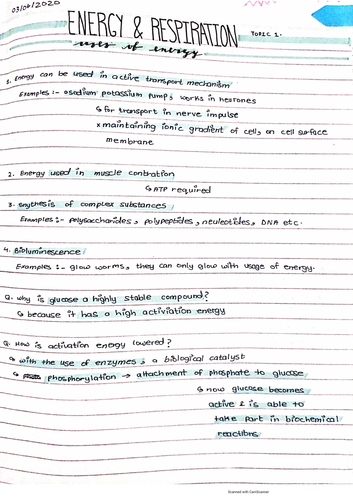 03/06/2020
ENERGY & RESPIRATION
TOPIC 1.
uses of energy
1. Energy can be used in active transport mechanism
Examples :- osodium potassium pump, works in neurones
↳ for transport in nerve impulse
x maintaining ionic gradient of cell, on cell surface
membrane
2. Energy used in muscle contration
↳ ATP required
3. Snythesis of complex substances
Examples :- polysaccharides, polypeptides, neuleotides, DNA etc.
4. Bioluminescence
Examples :- glow worms, they can only glow with usage of energy.
Q. why is glucose a highly stable compound?
↳ because it has a high activiation energy
Q. How is activation energy lowered?
↳ with the use of enzymes, a biological catalyst
↳ phosphorylation → attachment of phosphate to glucose
↳ now glucose becomes
active & is able to
take part in biochemical
reactions.
Scanned with CamScanner